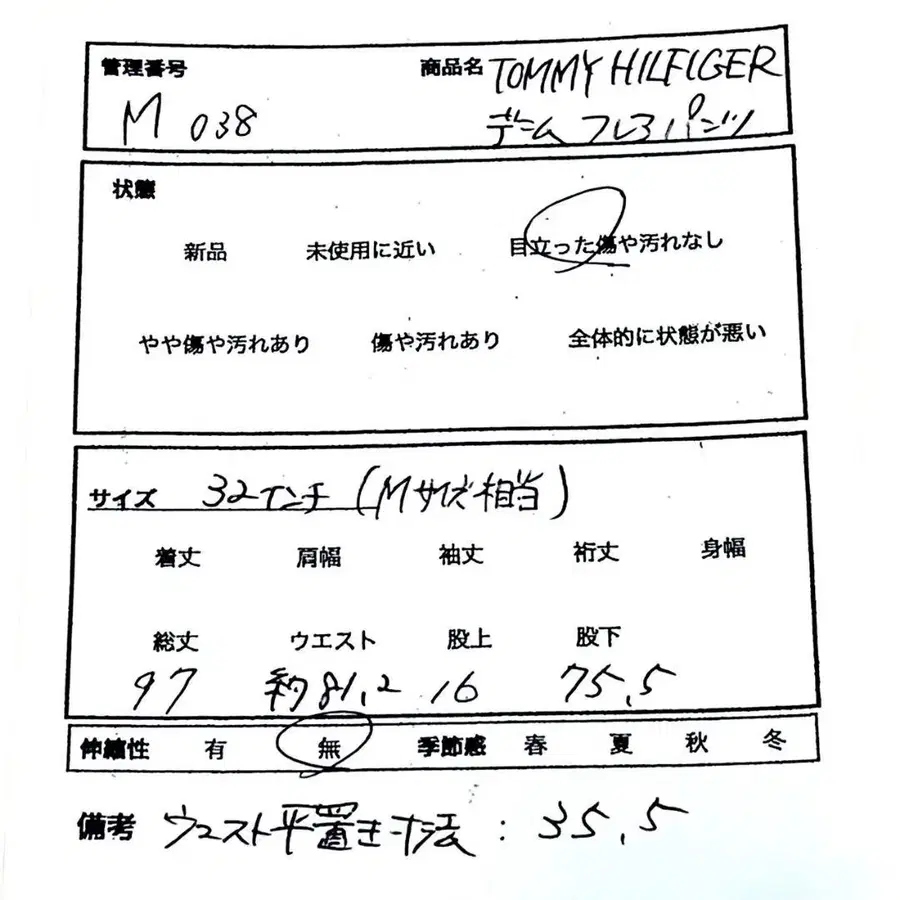 管理番号 商品名 TOMMY HILFIGER
M 038 デニム フレアパンツ
状態
新品 未使用に近い 目立った傷や汚れなし
やや傷や汚れあり 傷や汚れあり 全体的に状態が悪い
サイズ 32インチ (Mサイズ相当)
着丈 肩幅 袖丈 裄丈 身幅
総丈 ウエスト 股上 股下
97 約81.2 16 75.5
伸縮性 有 無 季節感 春 夏 秋 冬
備考 ウエスト平置き寸法 : 35.5